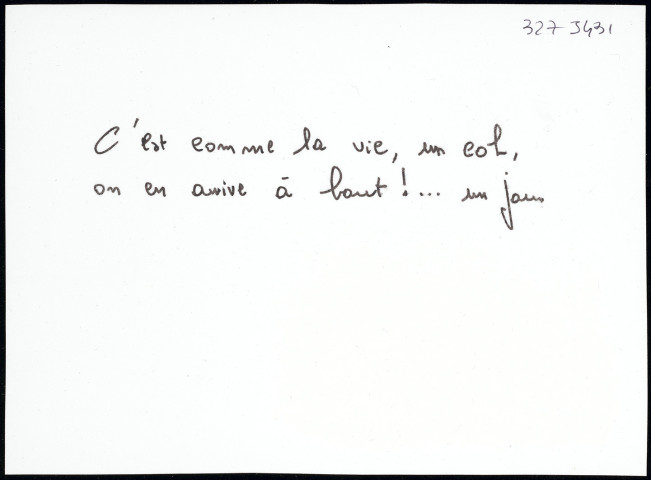 327 J431
C'est comme la vie, un col,
on en arrive à bout !... un jour